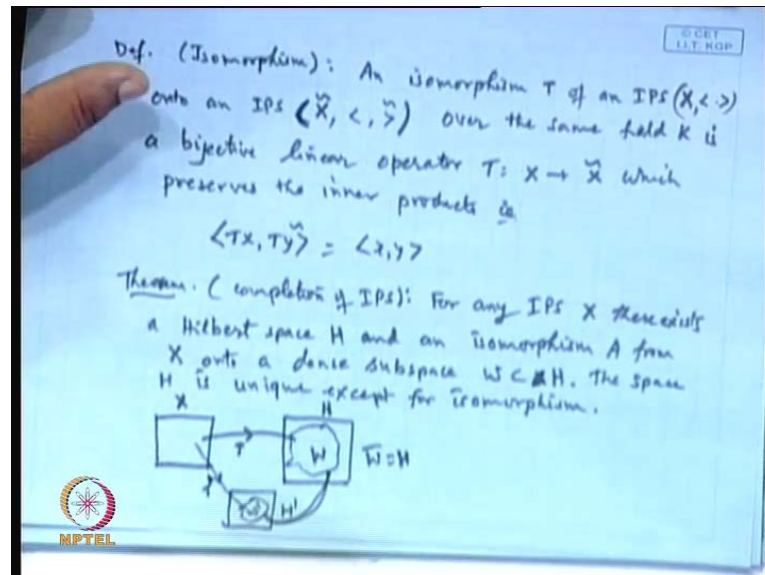 © CET
I.I.T. KGP
Def. (Isomorphism): An isomorphism T of an IPS (X, < . >)
onto an IPS (X̃, < , >̃) over the same field K is
a bijective linear operator T: X → X̃ which
preserves the inner products ie
<Tx, Tỹ> = <x, y>
Theorem. (completion of IPS): For any IPS X there exists
a Hilbert space H and an isomorphism A from
X onto a dense subspace W ⊂ H. The space
H is unique except for isomorphism.
X H
T W W̄ = H
H'
NPTEL